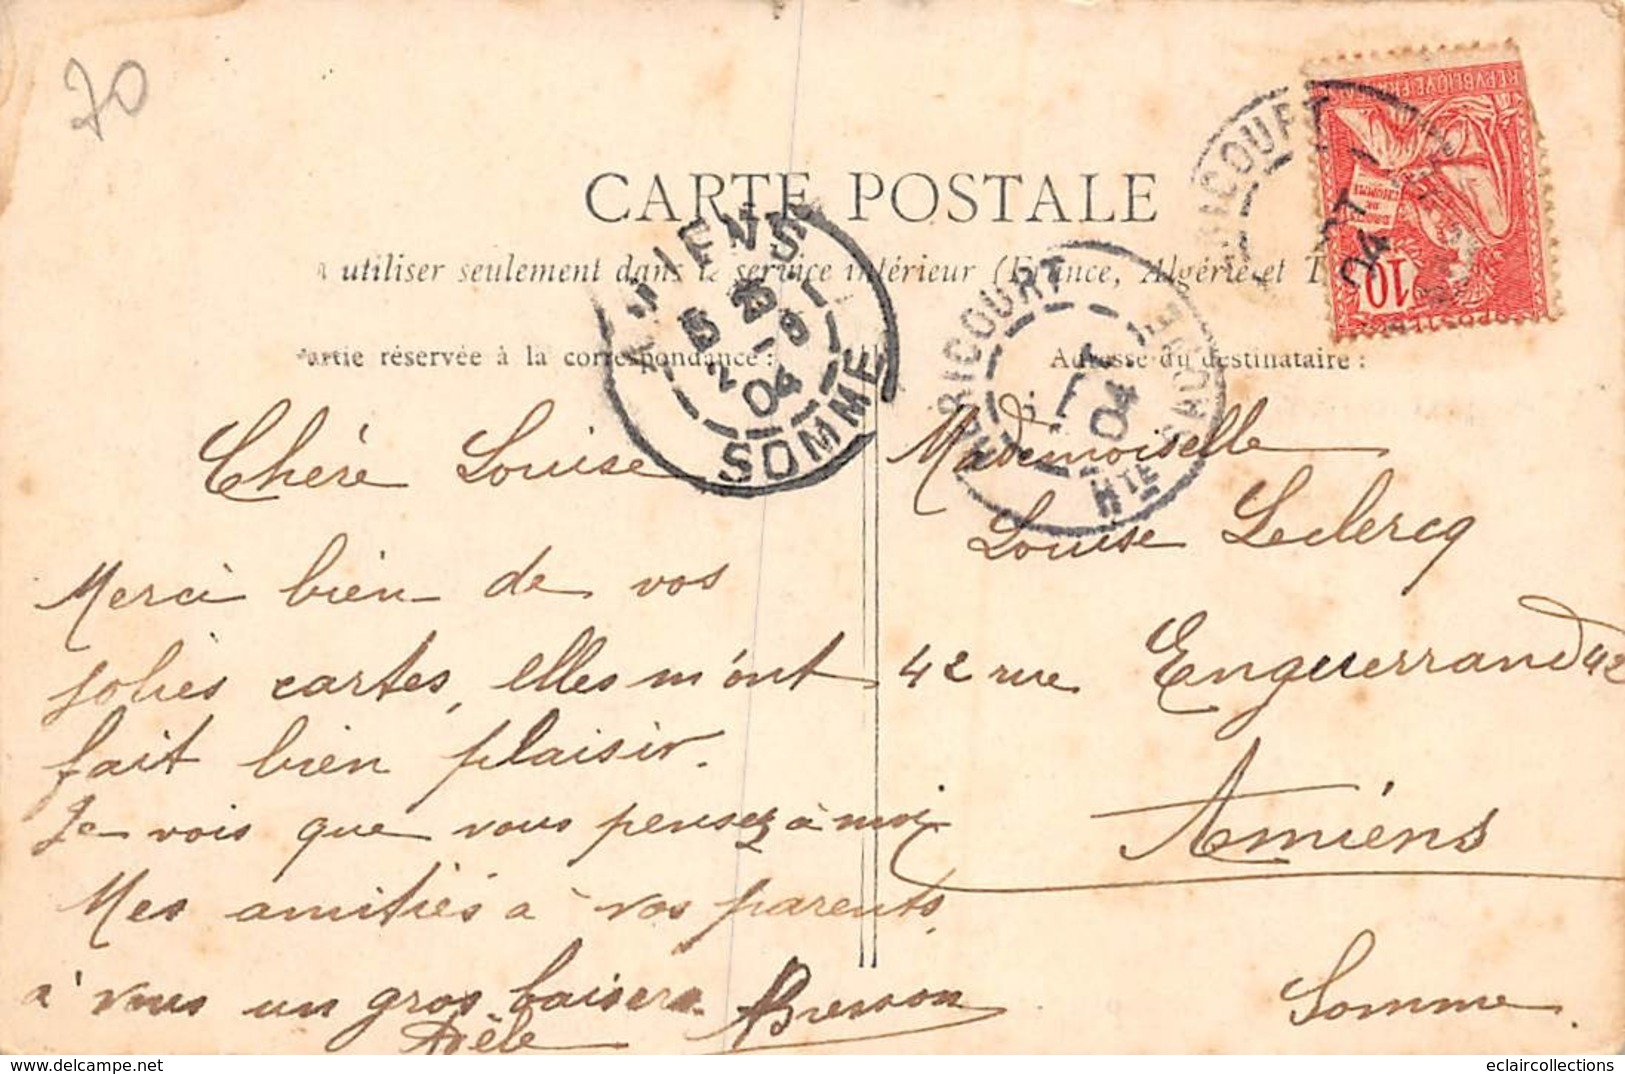 70
CARTE POSTALE
à utiliser seulement dans le service intérieur (France, Algérie et
Partie réservée à la correspondance :
Adresse du destinataire :
REPVBLIQVE FRANCAISE
10
POSTES
AMIENS
2 -9
04
SOMME
HERICOURT
04
Hte SAONE
HERICOURT
04
Chère Louise
Merci bien de vos
jolies cartes, elles m'ont
fait bien plaisir.
Je vois que vous pensez à moi
Mes amitiés à vos parents
à vous un gros baiser.
Adèle ABresson
Mademoiselle
Louise Leclercq
42 rue Enguerrand 42
Amiéns
Somme.
eclaircollections